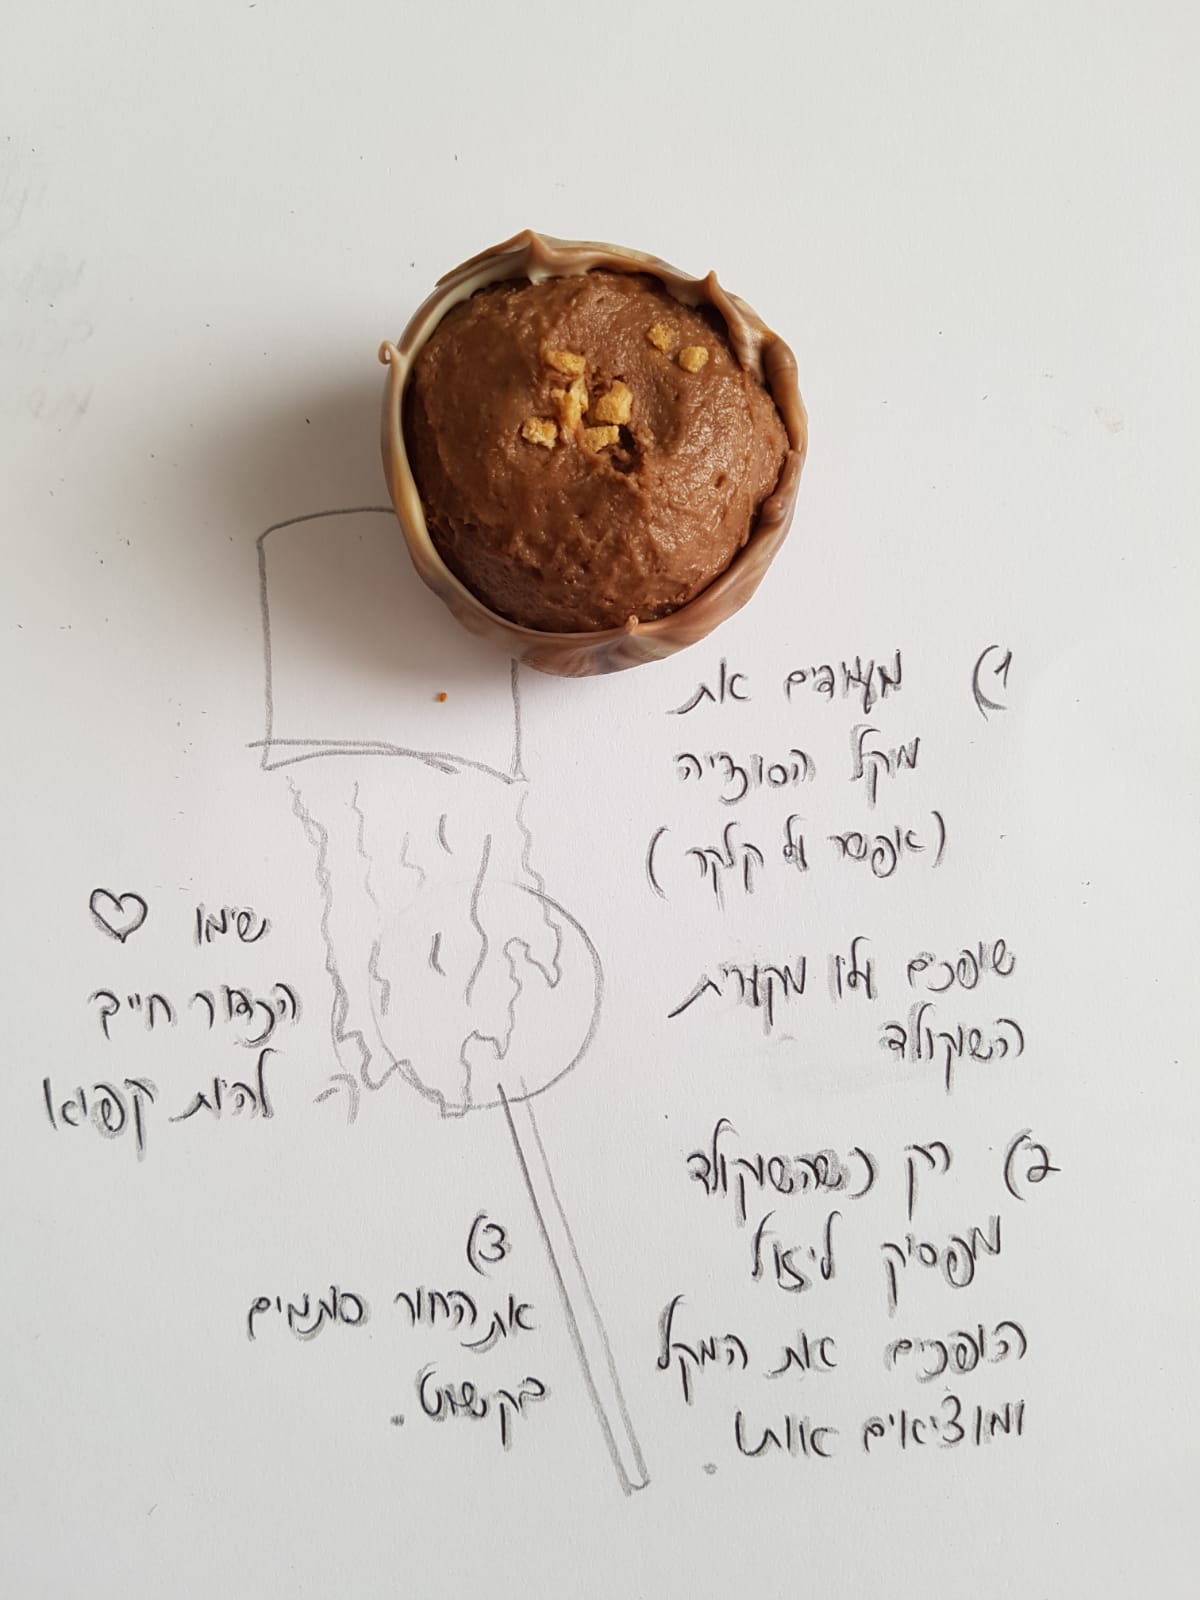 1) מעמידים את
מקל הסוכריה
(אפשר על קלקר)
שופכים עליו מקערית
השוקולד
2) רק כשהשוקולד
מפסיק ליזול
הופכים את המקל
ומוציאים אותו.
3)
את החור סותמים
בקשוט.
שימו ♡
הכדור חייב
להיות קפוא